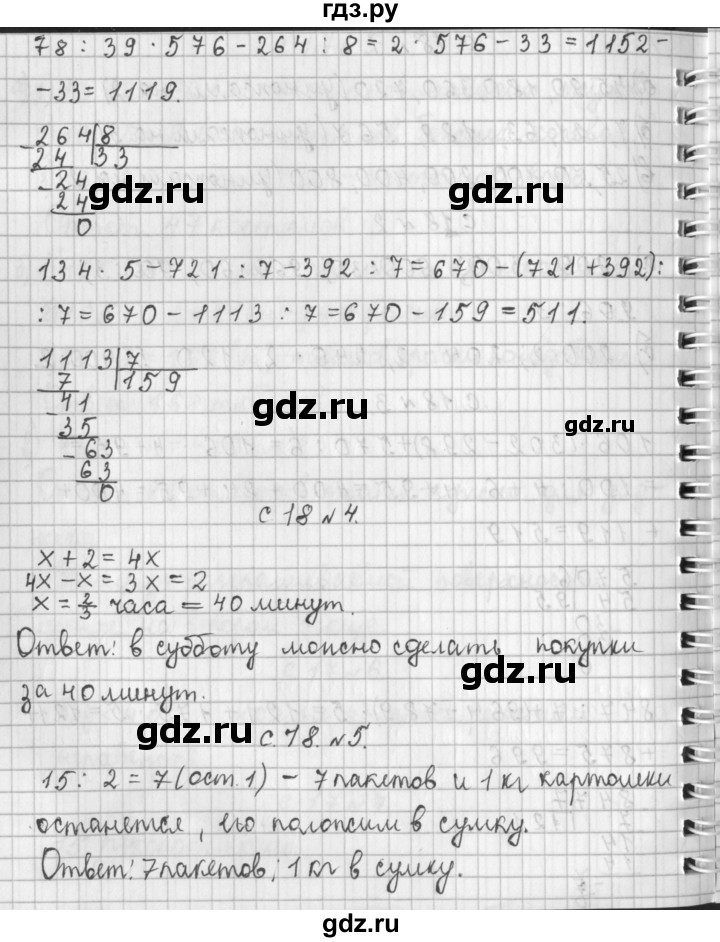 гдз.ру
78 : 39 · 576 - 264 : 8 = 2 · 576 - 33 = 1152 -
- 33 = 1119.
264 | 8
24 | 33
- 24
24
0
gdz.ru
gdz.ru
134 · 5 - 721 : 7 - 392 : 7 = 670 - (721 + 392) :
: 7 = 670 - 1113 : 7 = 670 - 159 = 511.
1113 | 7
7 | 159
- 41
35
- 63
63
0
gdz.ru
gdz.ru
с 18 № 4.
x + 2 = 4x
4x - x = 3x = 2
x = 2/3 часа = 40 минут.
Ответ: в субботу можно сделать покупки
за 40 минут.
gdz.ru
gdz.ru
с. 18. № 5.
15 : 2 = 7 (ост. 1) - 7 пакетов и 1 кг картошки
останется, его положим в сумку.
Ответ: 7 пакетов; 1 кг в сумку.
gdz.ru
gdz.ru
gdz.ru